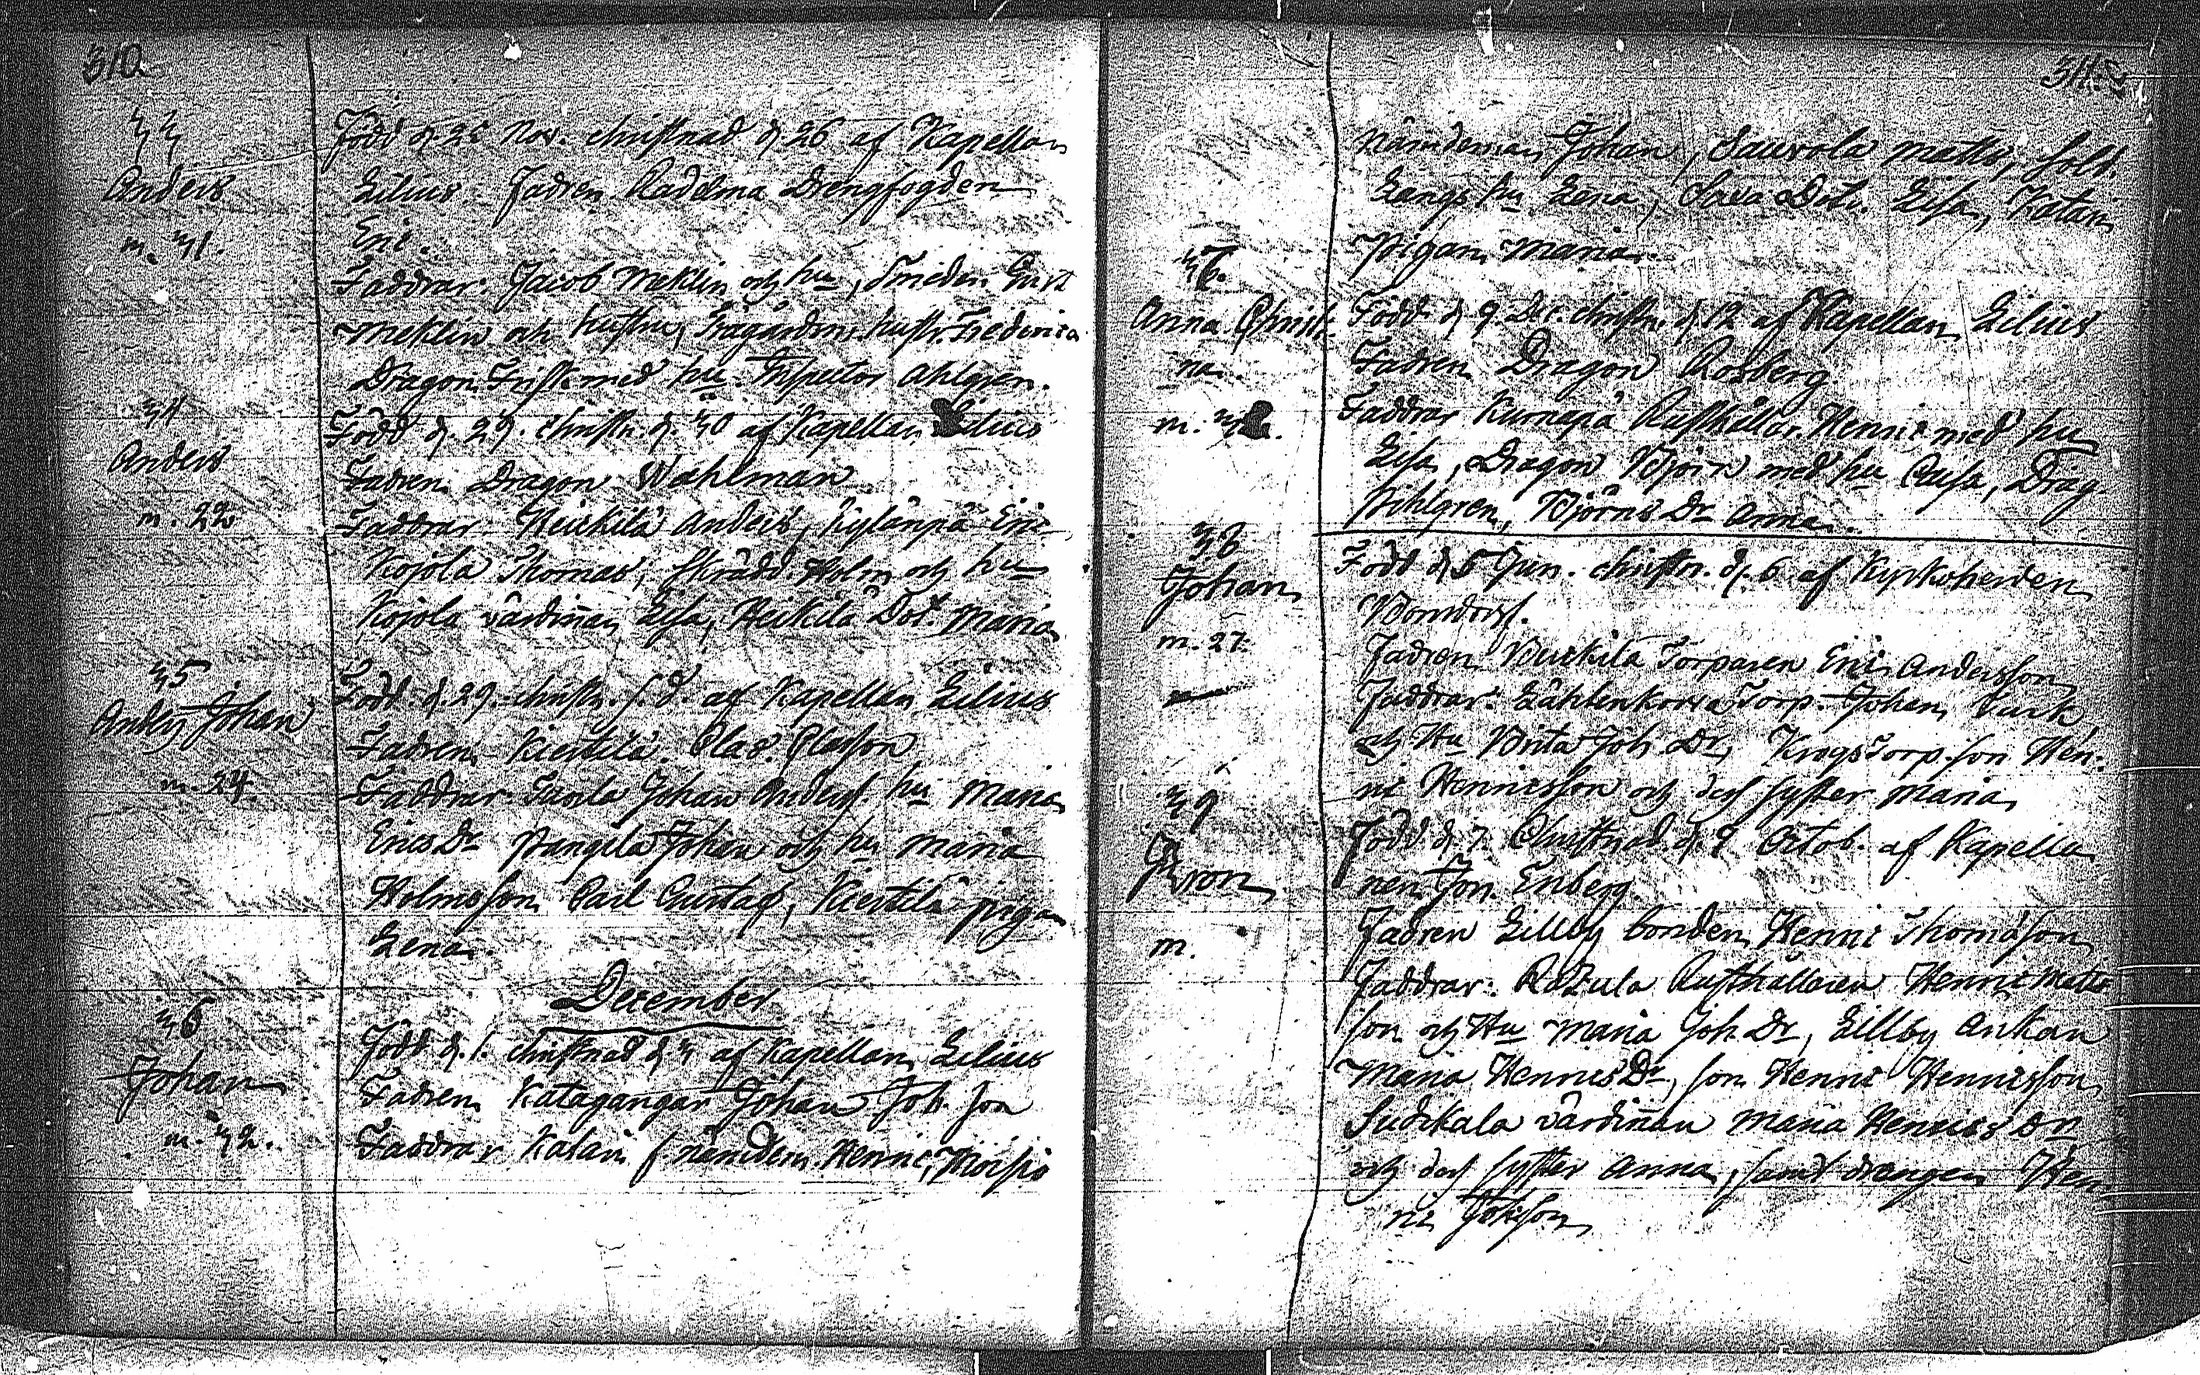 310.
33
Anders
m. 31.
Född d. 25 Nov. christnad d. 26 af Kapellan
Lilius. Fadren Radelma Drengfogden
Eric.
Faddrar. Jacob Meklin och hu, Smeden Gust
Meklin och hustru, hustr. Fredrica
Dragon Frisk med hu. Inspector Ahlgren.
34
Anders
m. 22
Född d. 29. christn. d. 30 af Kapellan Lilius
Fadren Dragon Wahlman
Faddrar. Heickilä Anders, Kylänpä Eric
Kojola Thomas, Skrädd. Holm och hu
Kojola värdinan Lisa, Heikilä Dot. Maria
35
Anders Johan
m. 24.
Född d. 29. christn. s. d. af Kapellan Lilius
Fadren Kiertilä Olas Olasson
Faddrar. Johan Anderss. hu Maria
Erics Dr Pangila Johan och hu Maria
Holms son Carl Gustaf, Kiertilä pigan
Lena.
December
36
Johan
m. 32.
Född d. 1. christnad d. 3 af Kapellan Lilius
Fadren Katagangar Johan Joh. son
Faddrar Katari f. nämdem. Henric, Moisio
311.
Nämdeman Johan, Sauvola Matts, Sold.
Langs hu Lena, Dotr. Lisa, Katari
Pigan Maria.
37.
Anna Christi
na.
m.
Född d. 9 Dec. christn. d. 12 af Kapellan Lilius
Fadren Dragon Rosberg
Faddrar Kurnapä Rusthållar. Henric med hu
Lisa, Dragon Björn med hu Caisa, Drag.
Björns Dr Anna.
38
Johan
m. 27.
Född d. 5 Jun. christn. d. 6 af Kyrkoherden
Bonsdorf.
Fadren Torparen Eric Andersson
Faddrar: Torp. Johan Turk
och Hu Brita Joh. Dr, Krogs Torp. son Hen-
ric Henricsson och dess syster Maria
39
Aron
m.
Född d. 7. Christnad d. 9 Octob. af Kapella
nen Jon. Enberg.
Fadren Lillby bonden Henric Thomasson
Faddrar: Rusthållaren Henric Matts
son och Hu Maria Joh. Dr, Lillby Enkan
Maria Henrics Dr, son Henric Henricsson
Sudikala värdinan Maria Henrics Dr
och dess syster Anna, samt drengen Hen
ric Johsson